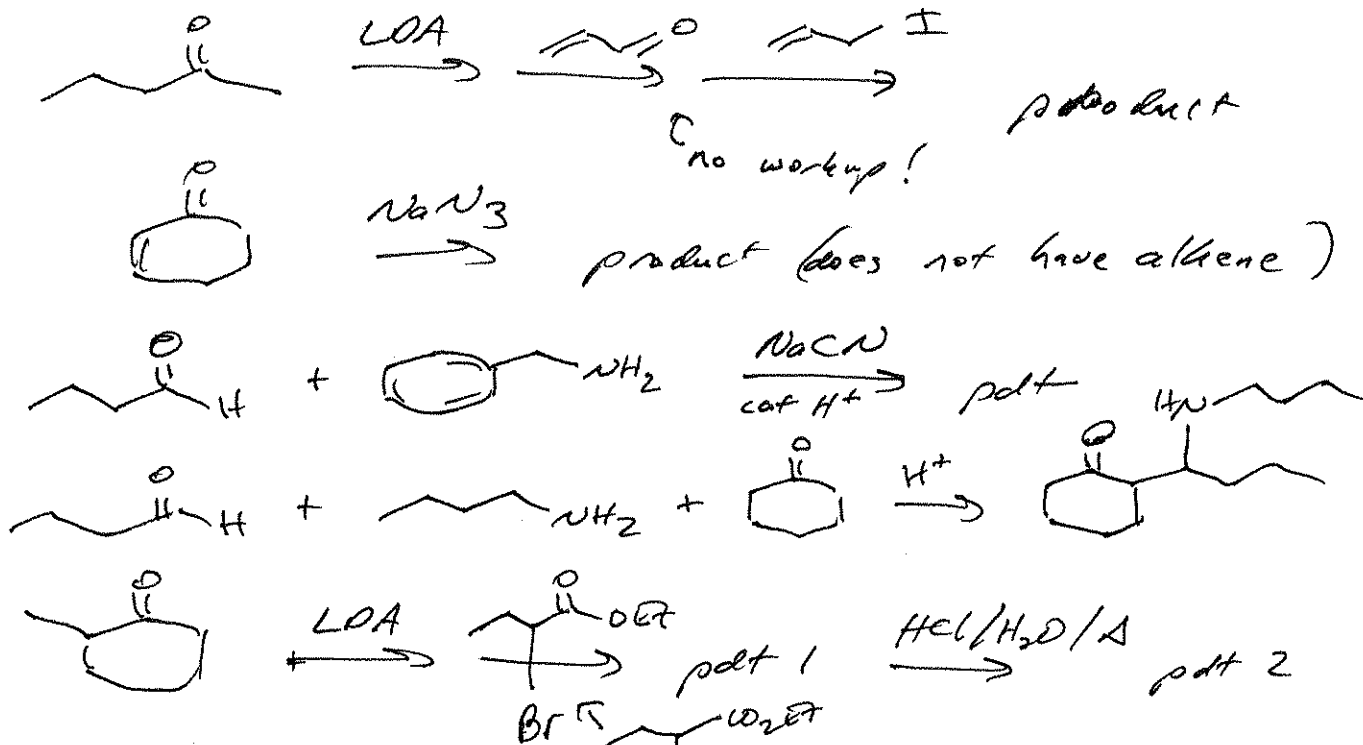 O LDA O I
product
no workup!
O NaN3 product (does not have alkene)
O H + NH2 NaCN cat H+ pdt
HN
O H + NH2 + O H+ O
O LDA O OEt pdt 1 HCl/H2O/Δ pdt 2
Br CO2Et